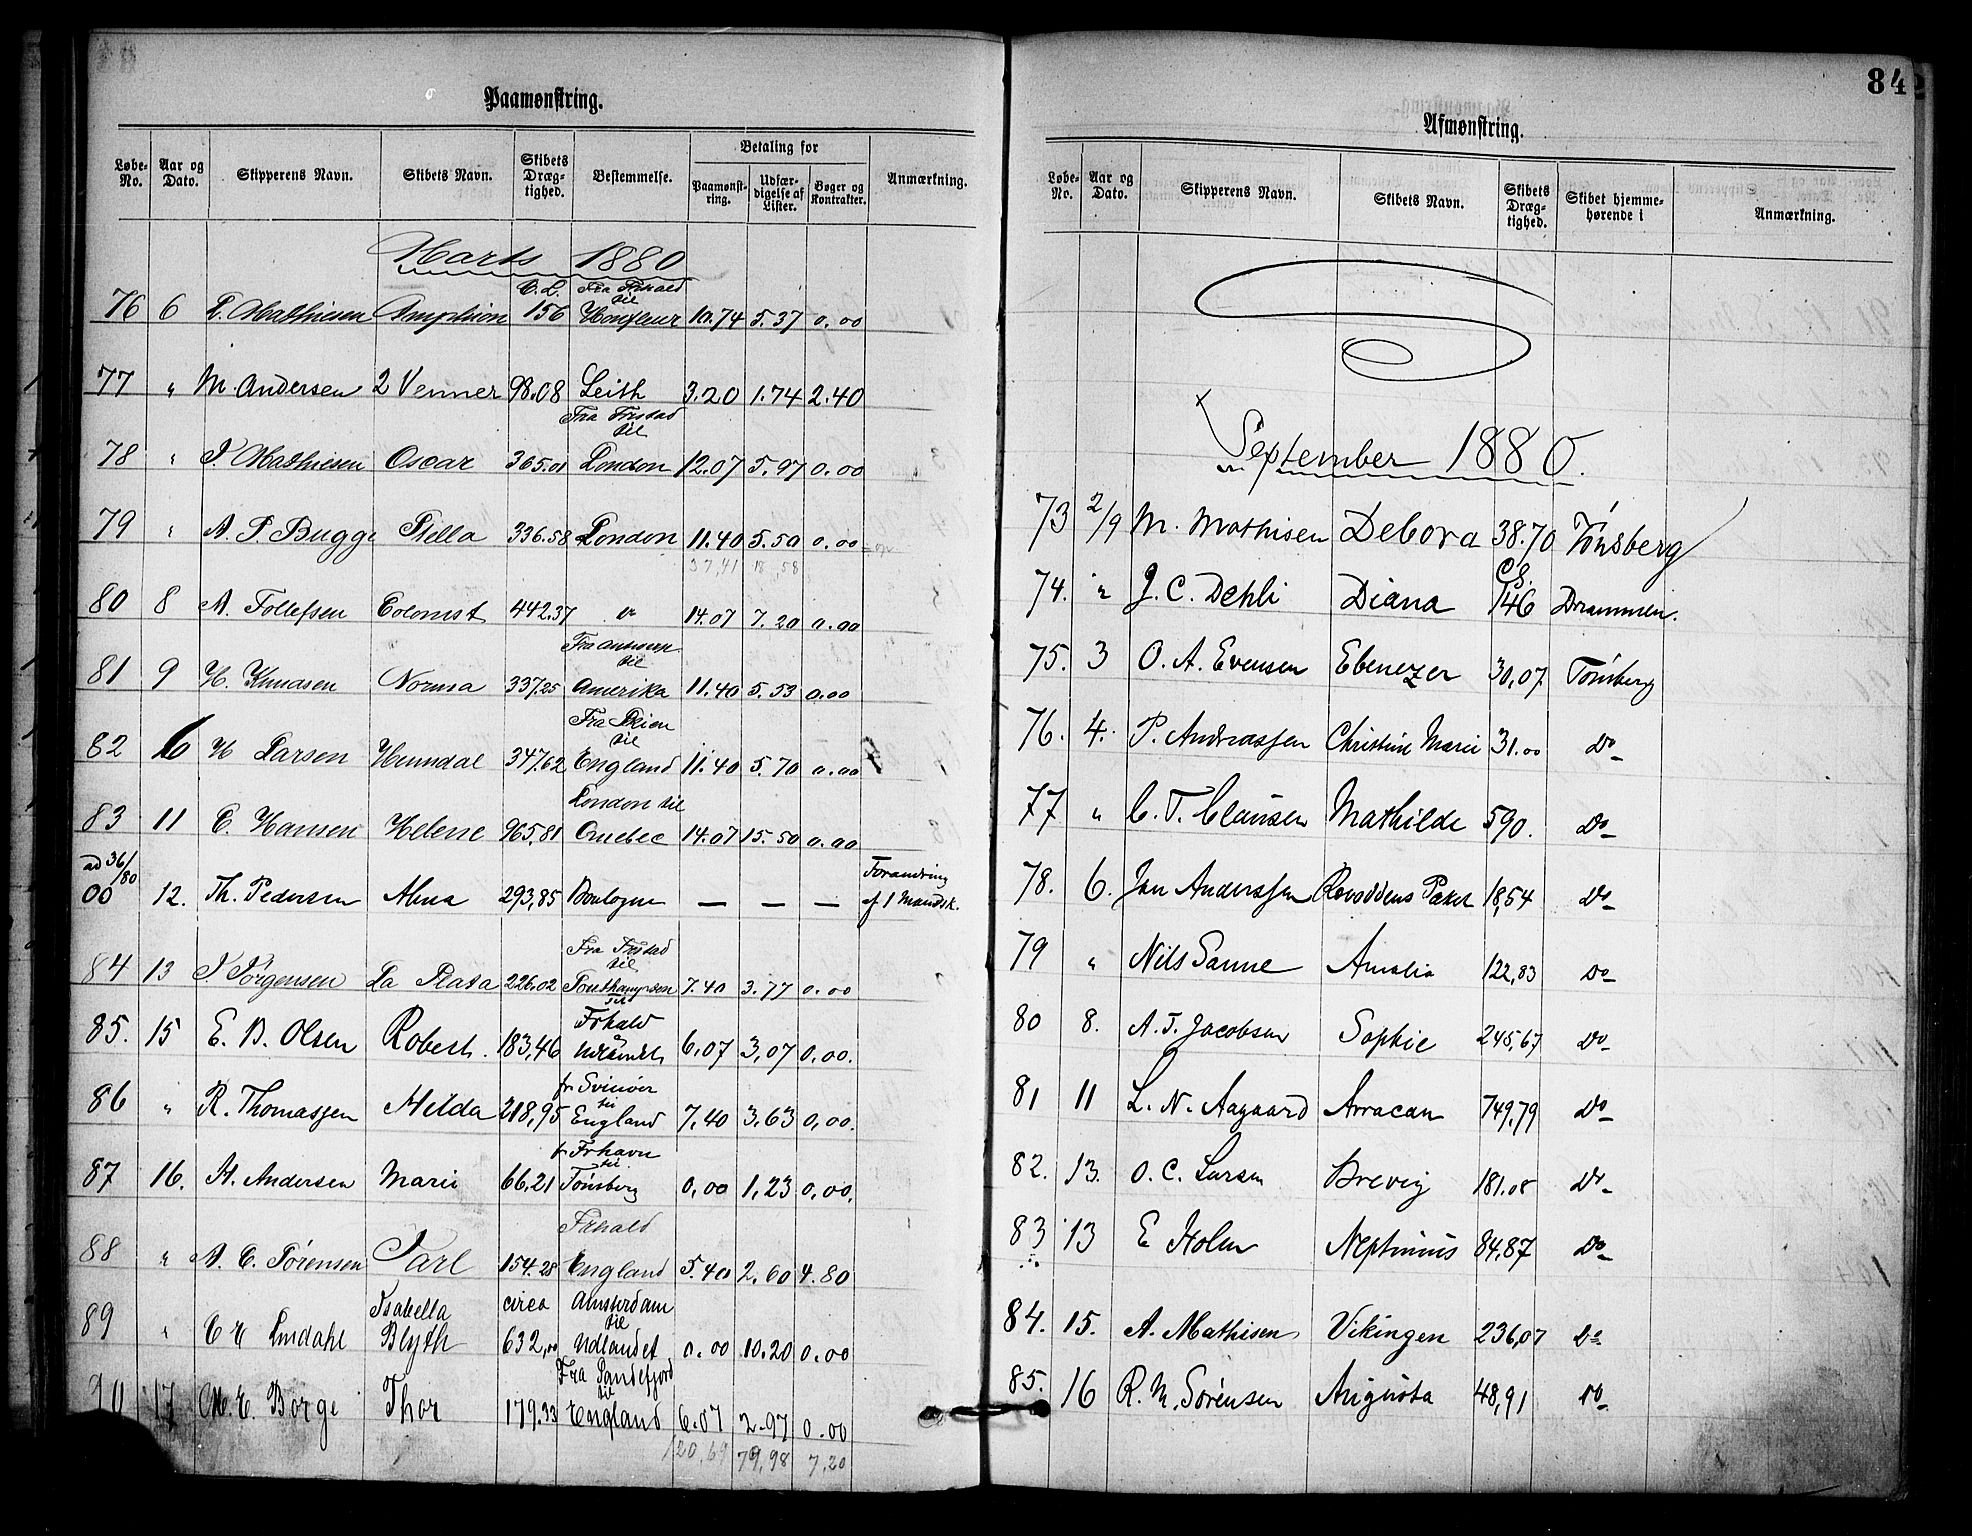 84
Paamønstring.
Løbe-No. Aar og Dato. Skipperens Navn. Skibets Navn. Skibets Dræg-tighed. Bestemmelse. Betaling for Paamønst-ring. Udfær-digelse af Lister. Bøger og Kontrakter. Anmærkning.
Marts 1880
C.L. Fra Frhald til
76 6 L. Mathiesen Amphion 156 Honfleur 10.74 5.37 0.00
77 " M. Andersen 2 Venner 98.08 Leith 3.20 1.74 2.40
Fra Frstad til
78 " J. Mathiesen Oscar 365.01 London 12.07 5.97 0.00
79 " A. P. Bugge Stella 336.58 London 11.40 5.50 0.00
37,41 18,58
80 8 A. Tollefsen Colonist 442.37 " 14.07 7.20 0.00
Fra Antwerp til
81 9 H. Knudsen Norma 337.25 Amerika 11.40 5.53 0.00
Fra Skien til
82 10 H Larsen Heimdal 347.62 England 11.40 5.70 0.00
London til
83 11 C. Hansen Helene 965,81 Quebec 14.07 15.50 0.00
ad 36/80
00 12. Th. Pedersen Alma 293,85 Boulogne — — — Forandring af 1 Mandsk.
Fra Frstad til
84 13 J. Jørgensen La Plata 226.02 Southampton 7.40 3.77 0.00
Frhald
85. 15 E. B. Olsen Robert. 183,46 Udlandet 6,07 3,07 0,00.
fr Svinør til
86 " R. Thomassen Hilda 218,95 England 7,40 3,63 0,00.
f Frhavn til
87 16. H. Andersen Marie 66,21 Tönsberg 0,00 1,23 0,00.
Frhald
88 " A. C. Sørensen Carl 154.28 England 5.40 2.60 4.80
Isabella circa Amsterdam til
89 " C E Lindahl Blyth 632,00 Udlandet 0.00 10.20 0.00
Fra Sandefjord til
90 17 M. E. Borge Thor 179.33 England 6.07 2.97 0.00
120,69 79,98 7,20
Afmønstring.
Løbe-No. Aar og Dato. Skipperens Navn. Skibets Navn. Skibets Dræg-tighed. Skibet hjemme-hørende i Anmærkning.
September 1880.
73 2/9 M. Mathisen Debora 38.70 Tönsberg
74. " J. C. Dehli Diana CL. 146 Drammen.
75. 3 O. A. Evensen Ebenezer 30,07 Tönsberg
76. 4. P. Andreassen Christine Marie 31.00 Do
77 " C. T. Clausen Mathilde 590. Do
78. 6. Jan Anderssen Rovsoddens Paket 18,54 Do
79 " Nils Sanne Amalia 122,83 Do
80 8. A. T. Jacobsen Sophie 245,67 Do
81 11 L. N. Aagaard Arracan 749,79 Do
82. 13. O. C. Larsen Brevig 181.08 Do
83 13 E Holm Neptunus 84,87 Do
84. 15. A. Mathisen Vikingen 236,07 Do
85. 16 R. M. Sörensen Augusta 48,91 Do